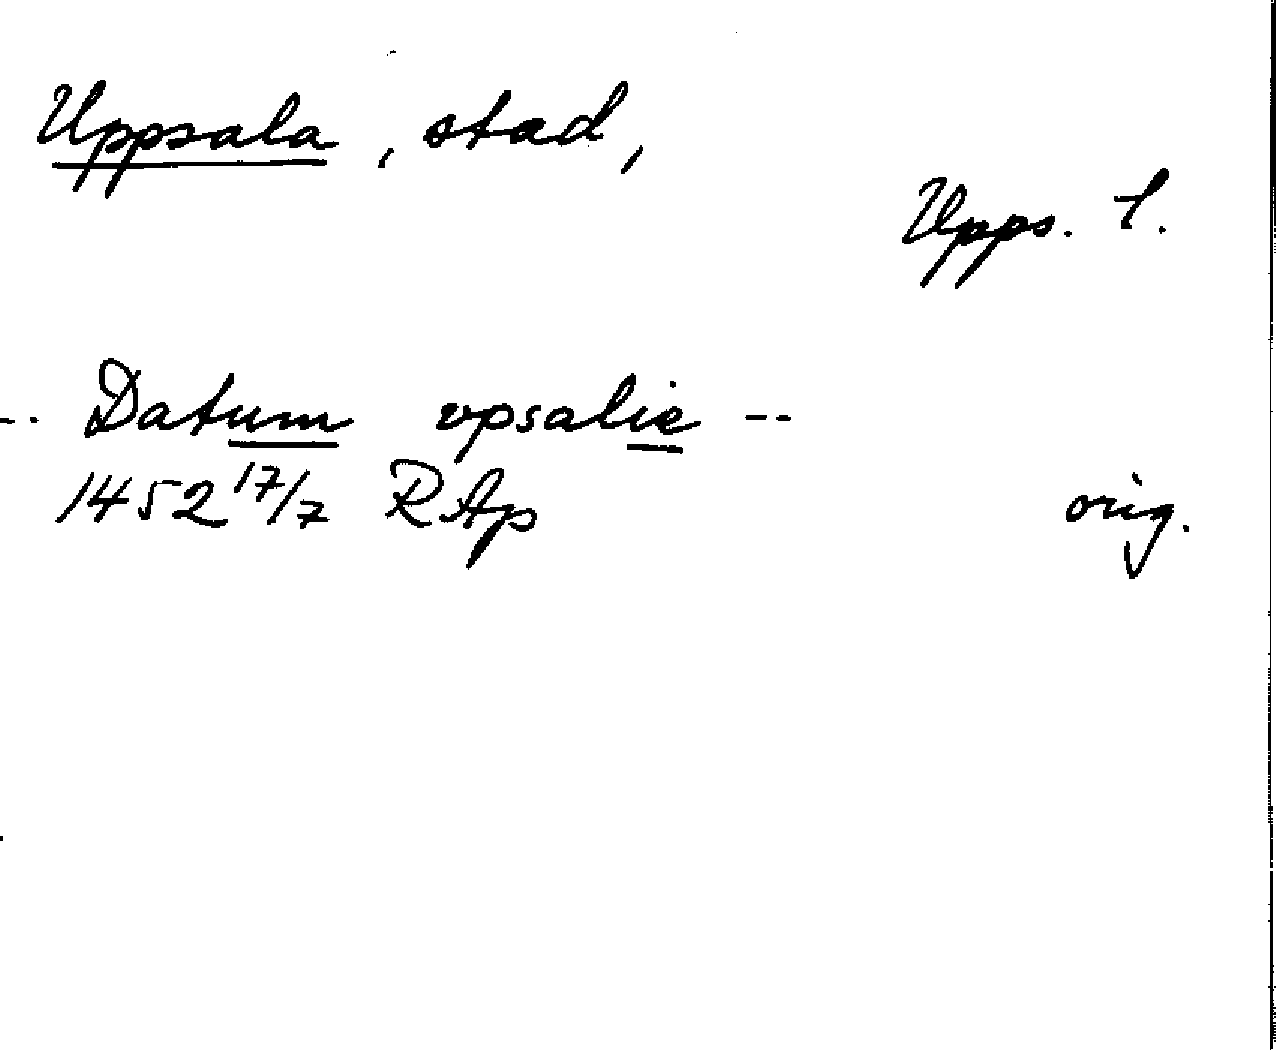 Uppsala, stad,
Upps. l.
-- Datum vpsalie --
1452 17/7 RAp orig.